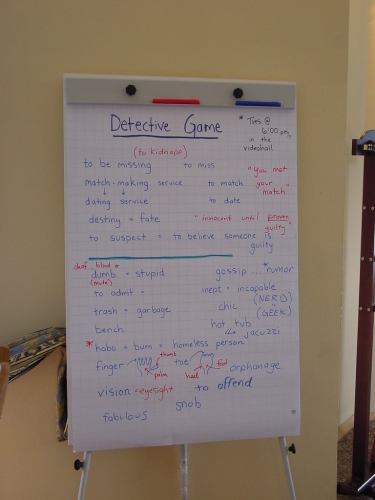 Detective Game
* Tues @ 6:00 pm
in the
videohall
(to kidnapp)
to be missing to miss
"you met
match-making service to match your
match"
dating service to date
destiny = fate "innocent until proven
guilty"
to suspect = to believe someone is
guilty
deaf, blind *
dumb = stupid gossip ... * rumor
(mute)
to admit = inept = incapable
(NERD)
trash = garbage chic (GEEK)
bench hot tub
jacuzzi
* hobo = bum = homeless person
thumb
finger toe foot orphanage
palm heel
vision = eyesight to offend
fabulous snob